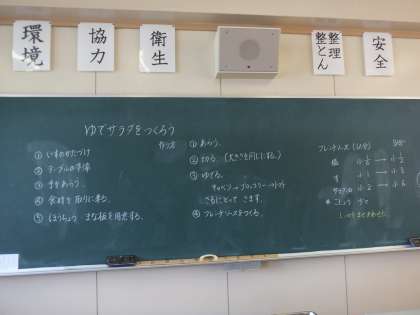 環境
協力
衛生
整理
整とん
安全
ゆでサラダをつくろう
① いすのかたづけ
② テーブルの準備
③ 手をあらう
④ 食材を取りに来る。
⑤ ほうちょう まな板を用意する。
作り方
① あらう。
② 切る (大きさを同じにする。)
③ ゆでる。
キャベツ→ブロッコリー→トマト
ざるにとって さます。
④ フレンチソースをつくる。
フレンチソース (1人分)
塩
酢
サラダ油
こしょう 少々
しっかりまぜ合わせる。